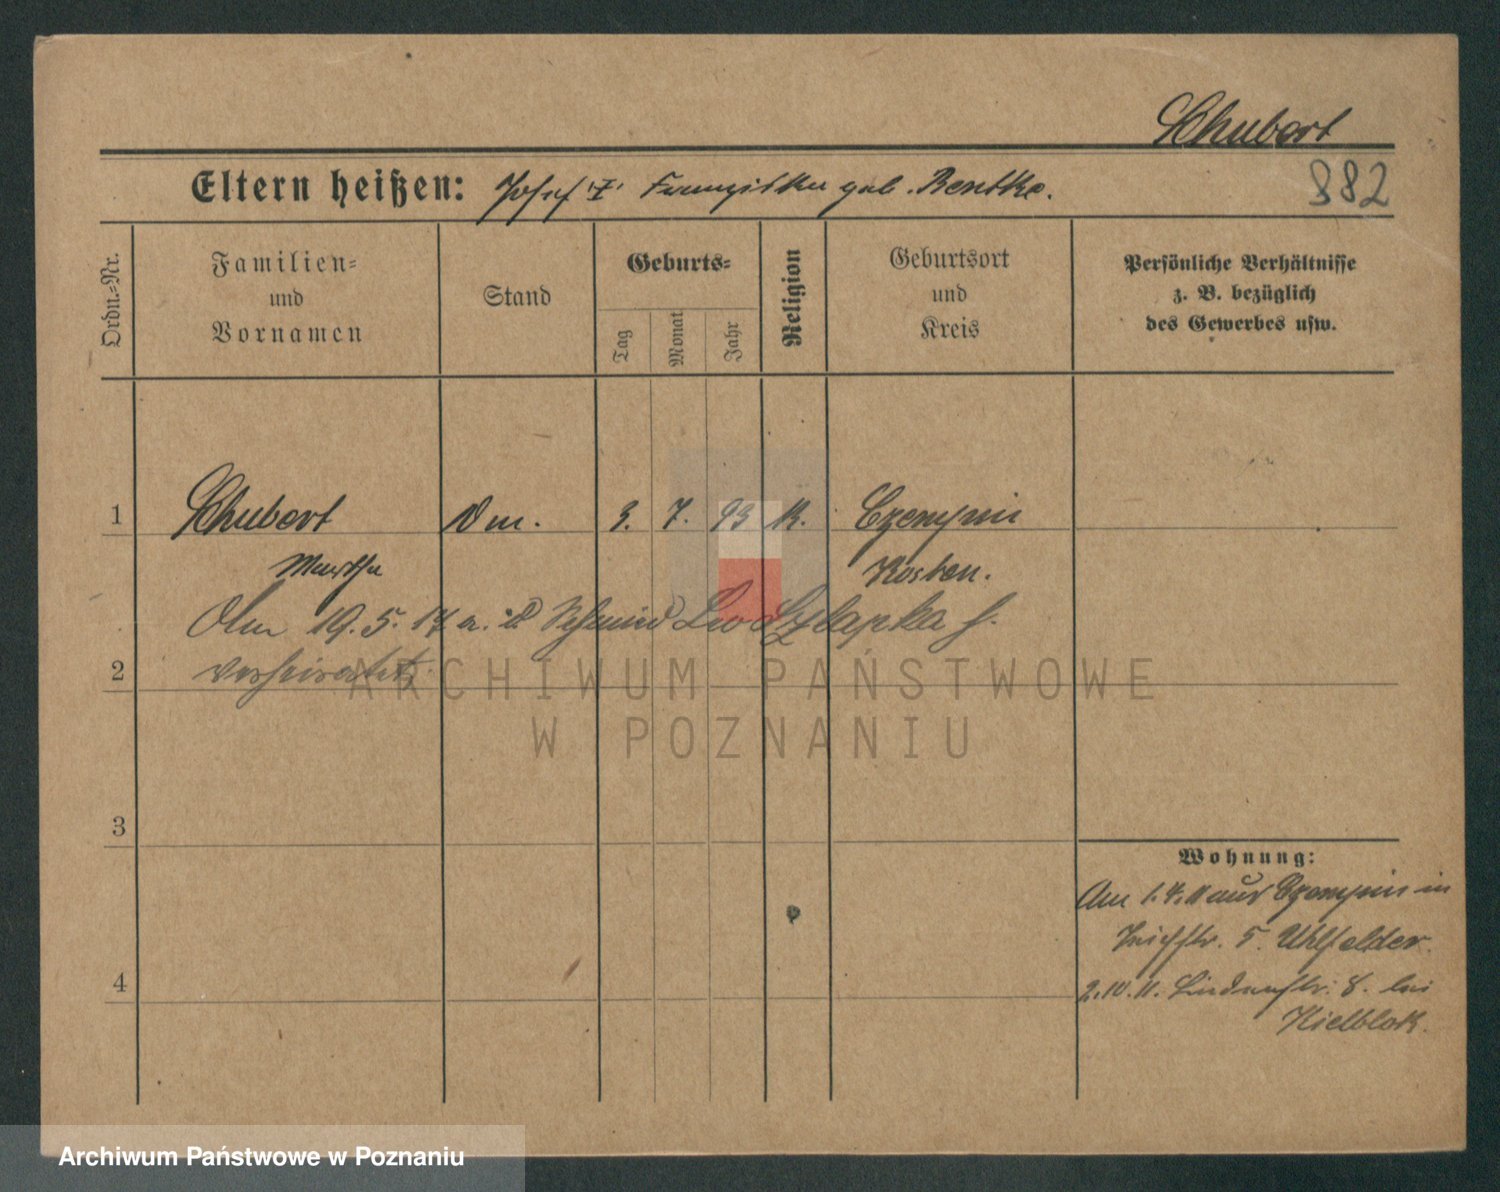 Schubert
882
Eltern heißen: Josef u. Franziska geb. Rentke.
Ordn.=Nr.
Familien=
und
Vornamen
Stand
Geburts=
Tag
Monat
Jahr
Religion
Geburtsort
und
Kreis
Persönliche Verhältnisse
z. B. bezüglich
des Gewerbes usw.
1 Schubert Dm. 3. 7. 93 K. Czempin
Martha Kosten.
19. 5. 17 a. d. Schmied Szlapka
2 verheiratet.
ARCHIWUM PAŃSTWOWE
W POZNANIU
3
Wohnung:
Am 1.4.11 aus Czempin in
5. Uhlfelder.
4
2.10.11. Lindenstr. 8. bei
Kielblok.
Archiwum Państwowe w Poznaniu